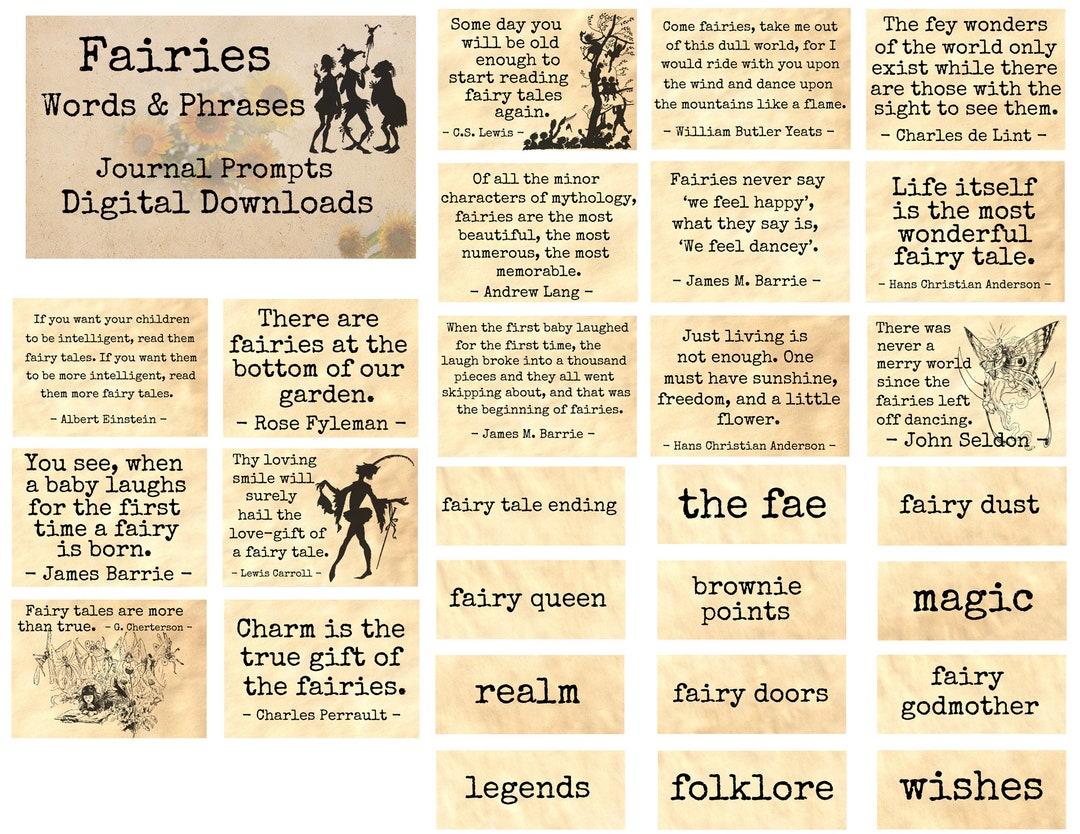 Fairies
Words & Phrases
Journal Prompts
Digital Downloads
Some day you
will be old
enough to
start reading
fairy tales
again.
- C.S. Lewis -
Come fairies, take me out
of this dull world, for I
would ride with you upon
the wind and dance upon
the mountains like a flame.
- William Butler Yeats -
The fey wonders
of the world only
exist while there
are those with the
sight to see them.
- Charles de Lint -
Of all the minor
characters of mythology,
fairies are the most
beautiful, the most
numerous, the most
memorable.
- Andrew Lang -
Fairies never say
‘we feel happy’,
what they say is,
‘We feel dancey’.
- James M. Barrie -
Life itself
is the most
wonderful
fairy tale.
- Hans Christian Anderson -
If you want your children
to be intelligent, read them
fairy tales. If you want them
to be more intelligent, read
them more fairy tales.
- Albert Einstein -
There are
fairies at the
bottom of our
garden.
- Rose Fyleman -
When the first baby laughed
for the first time, the
laugh broke into a thousand
pieces and they all went
skipping about, and that was
the beginning of fairies.
- James M. Barrie -
Just living is
not enough. One
must have sunshine,
freedom, and a little
flower.
- Hans Christian Anderson -
There was
never a
merry world
since the
fairies left
off dancing.
- John Seldon -
You see, when
a baby laughs
for the first
time a fairy
is born.
- James Barrie -
Thy loving
smile will
surely
hail the
love-gift of
a fairy tale.
- Lewis Carroll -
fairy tale ending
the fae
fairy dust
fairy queen
brownie
points
magic
Fairy tales are more
than true. - G. Cherterson -
Charm is the
true gift of
the fairies.
- Charles Perrault -
realm
fairy doors
fairy
godmother
legends
folklore
wishes